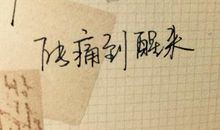 陣痛到醒来